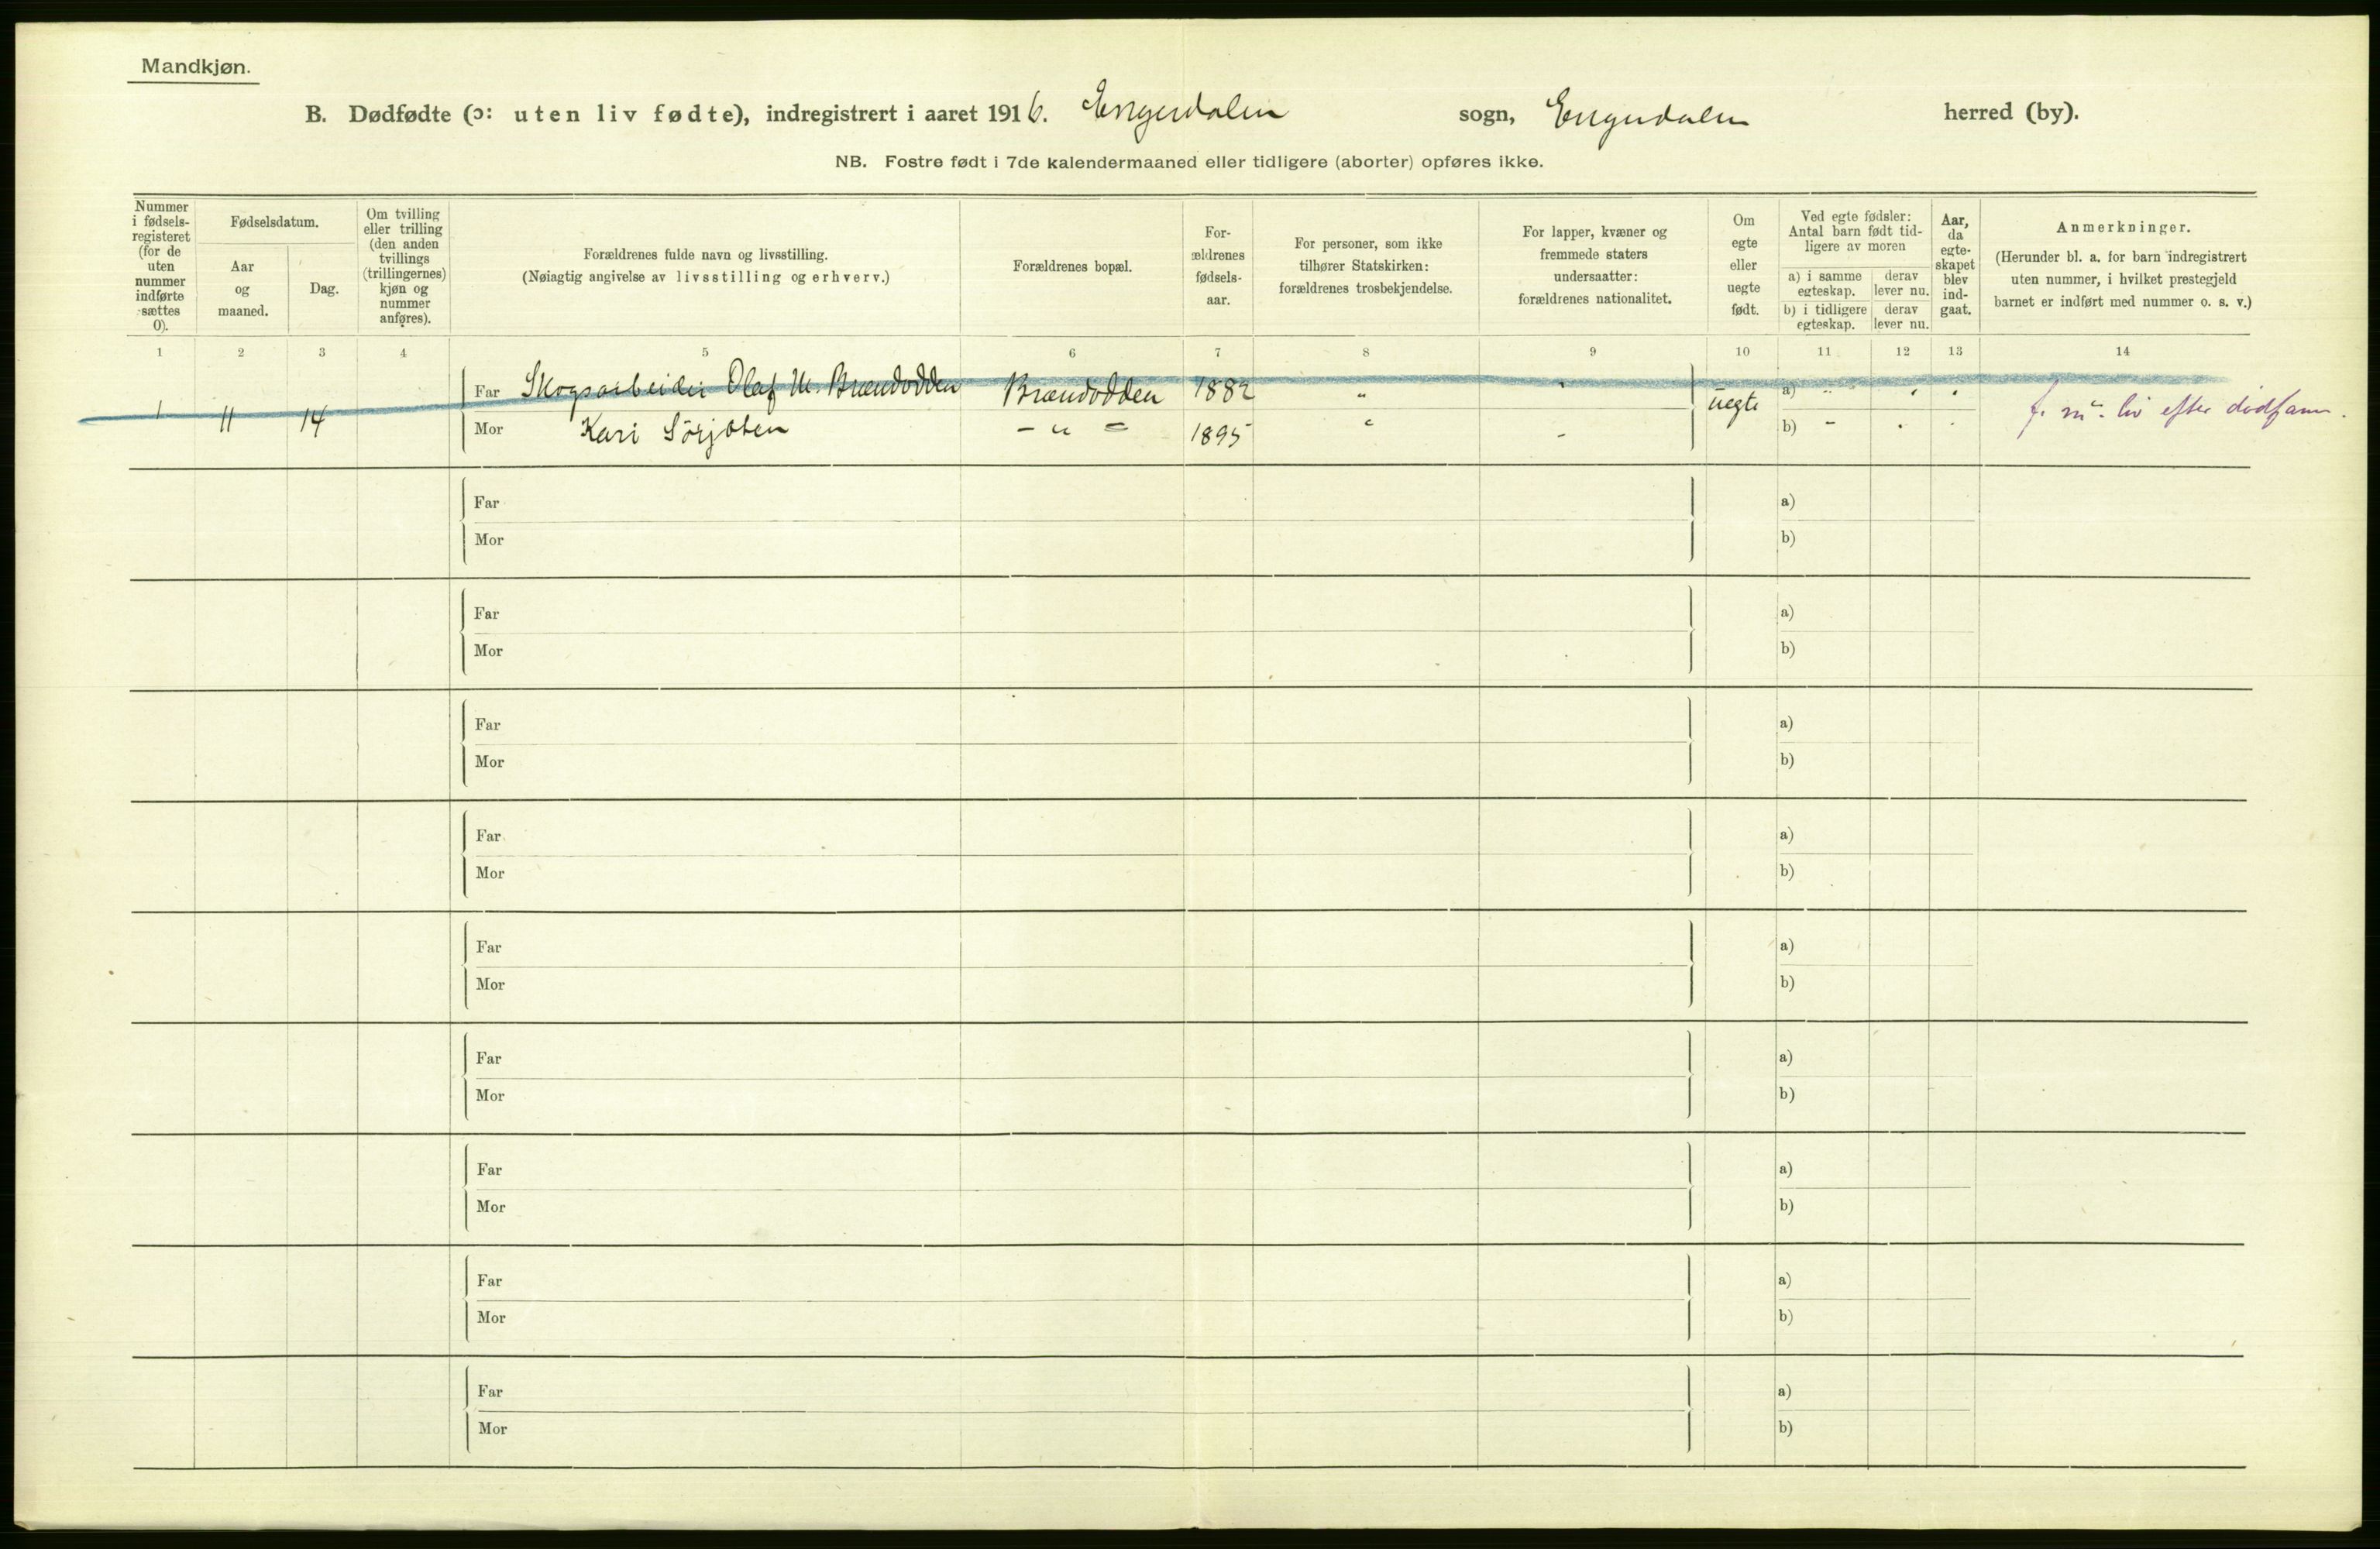 Mandkjøn.
B. Dødfødte (ɔ: uten liv fødte), indregistrert i aaret 1916. Engerdalen sogn, Engerdalen herred (by).
NB. Fostre født i 7de kalendermaaned eller tidligere (aborter) opføres ikke.
Nummer i fødsels-registeret (for de uten nummer indførte sættes 0).
Fødselsdatum.
Aar og maaned.
Dag.
Om tvilling eller trilling (den anden tvillings (trillingernes) kjøn og nummer anføres).
Forældrenes fulde navn og livsstilling.
(Nøiagtig angivelse av livsstilling og erhverv.)
Forældrenes bopæl.
For-ældrenes fødsels-aar.
For personer, som ikke tilhører Statskirken: forældrenes trosbekjendelse.
For lapper, kvæner og fremmede staters undersaatter: forældrenes nationalitet.
Om egte eller uegte født.
Ved egte fødsler: Antal barn født tid-ligere av moren
a) i samme egteskap.
derav lever nu.
b) i tidligere egteskap.
derav lever nu.
Aar, da egte-skapet blev ind-gaat.
Anmerkninger.
(Herunder bl. a. for barn indregistrert uten nummer, i hvilket prestegjeld barnet er indført med nummer o. s. v.)
1 2 3 4 5 6 7 8 9 10 11 12 13 14
Far Skogsarbeider Olaf M. Brændodden Brændodden 1882 " " a) " " "
1 11 14 uegte f. m. liv efter dødfann.
Mor Kari Sörjoten - " - 1895 " - b) - . .
Far a)
Mor b)
Far a)
Mor b)
Far a)
Mor b)
Far a)
Mor b)
Far a)
Mor b)
Far a)
Mor b)
Far a)
Mor b)
Far a)
Mor b)
Far a)
Mor b)